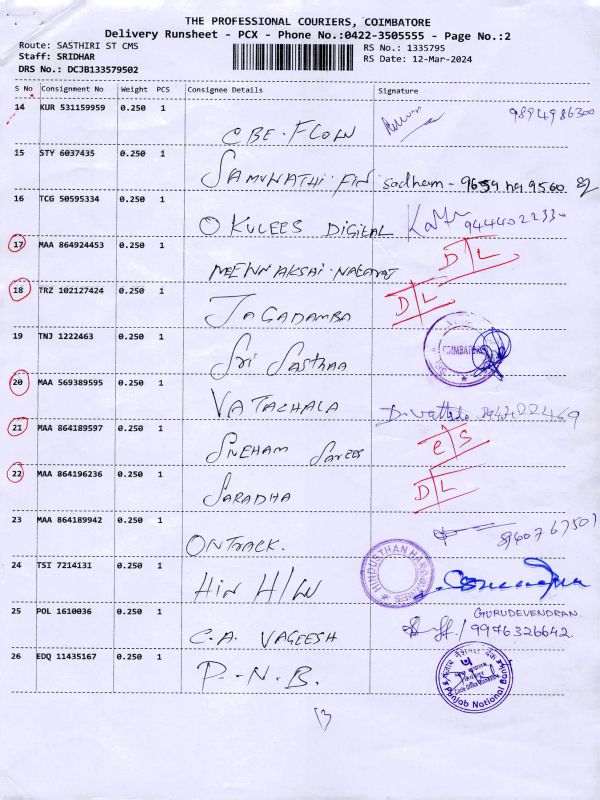 THE PROFESSIONAL COURIERS, COIMBATORE
Delivery Runsheet - PCX - Phone No.:0422-3505555 - Page No.:2
Route: SASTHIRI ST CMS
RS No.: 1335795
Staff: SRIDHAR
RS Date: 12-Mar-2024
DRS No.: DCJB133579502
S No Consignment No Weight PCS Consignee Details Signature
14 KUR 531159959 0.250 1 CBE. FLOW 9894986300
15 STY 6037435 0.250 1 SAMUNATHI. FIN sadham - 9659 9560
16 TCG 50595334 0.250 1 OKULEES DIGITAL 9444022330
17 MAA 864924453 0.250 1 D/L
18 TRZ 102127424 0.250 1 JAGADAMBA D/L
19 TNJ 1222463 0.250 1 Sri Sasthaa COIMBATORE
20 MAA 569389595 0.250 1 VATACHALA
21 MAA 864189597 0.250 1 SNEHAM Sarees e/s
22 MAA 864196236 0.250 1 SARADHA D/L
23 MAA 864189942 0.250 1 ONTRACK. 8940767507
24 TSI 7214131 0.250 1 HIN H/W HINDUSTHAN
25 POL 1610036 0.250 1 C.A. VAGEESH GURUDEVENDRAN
9976326642.
26 EDQ 11435167 0.250 1 P.N.B. Punjab National Bank
13